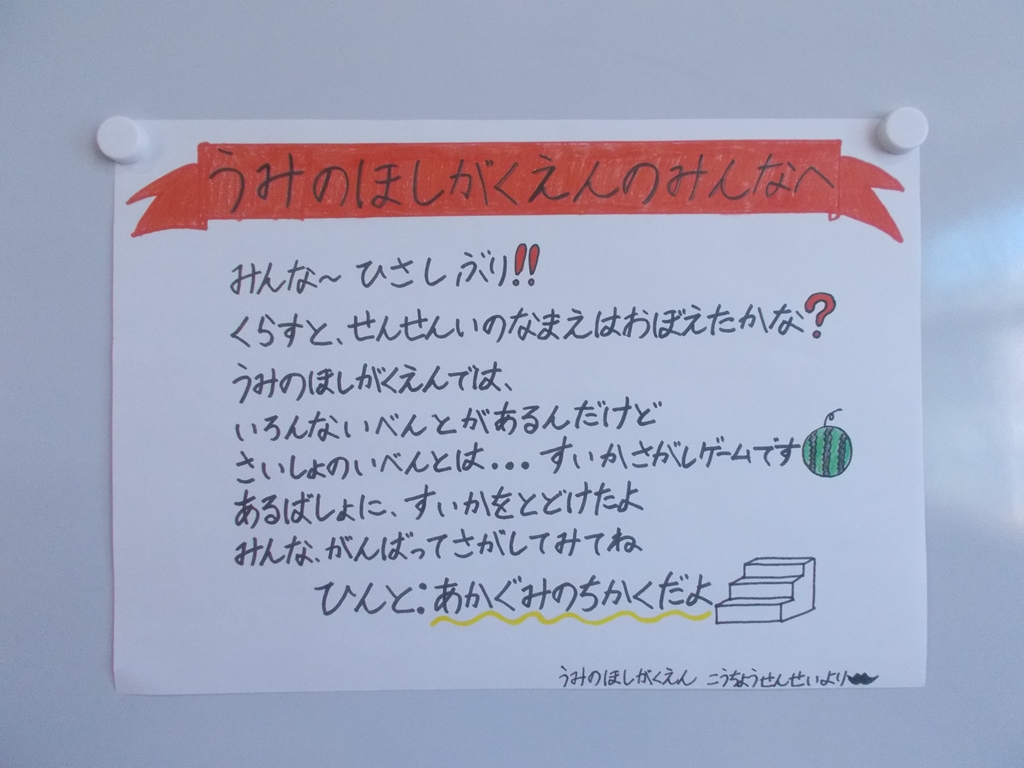 うみのほしがくえんのみんなへ
みんな～ ひさしぶり!!
くらすと、せんせんいのなまえはおぼえたかな?
うみのほしがくえんでは、
いろんないべんとがあるんだけど
さいしょのいべんとは... すいかさがしゲームです
あるばしょに、すいかをとどけたよ
みんな、がんばってさがしてみてね
ひんと:あかぐみのちかくだよ
うみのほしがくえん こうちょうせんせいより